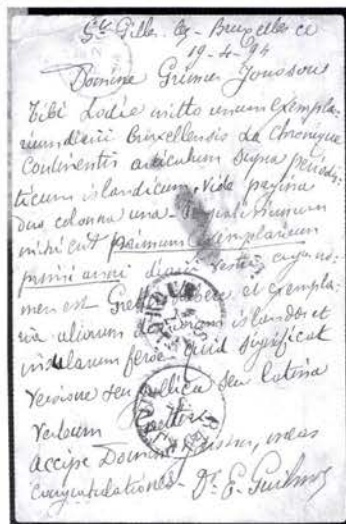 St Gilles lez-Bruxelles ce
19-4-94
Domine Grimur Jonsson
Tibi hodie mitto unum exempla-
rium diarii Bruxellensis La Chronique
Continentis articulum supra periodi-
ticum islandicum. Vide pagina
duo colonna una
mihi erit primum exemplarium
primi anni diarii vestri cujus no-
men est Grettir et exempla-
ria aliorum islandos et
insularum feroe quid significat
versione seu gallica seu latina
verbum Grettir
accipe Domine Grimur, meas
congratulationes - Dr. E. Guilmot